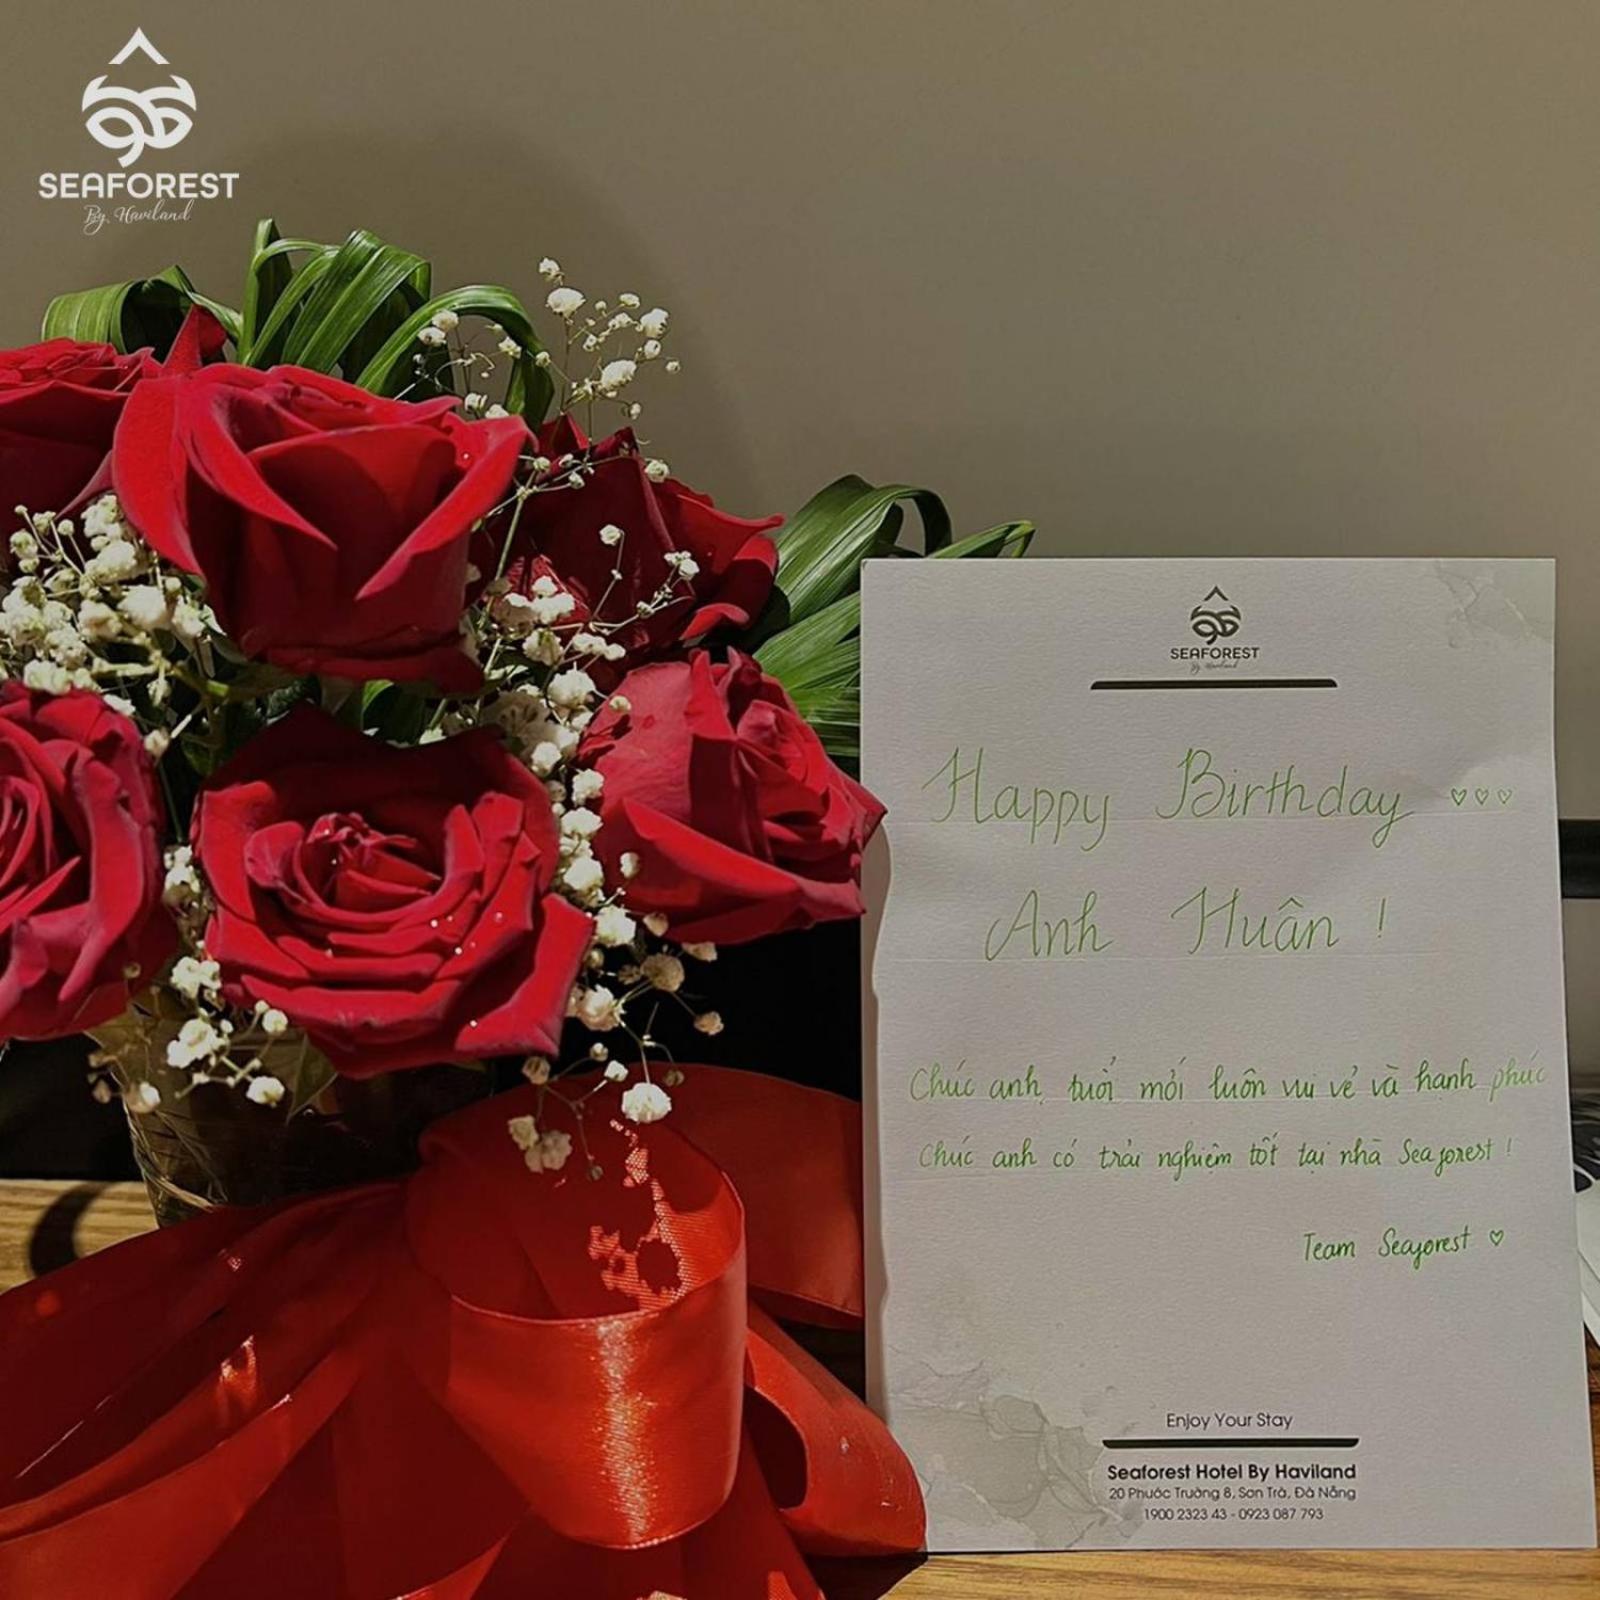 SEAFOREST
By Haviland
SEAFOREST
By Haviland
Happy Birthday ♡♡♡
Anh Huân !
Chúc anh, tuổi mới luôn vui vẻ và hạnh phúc
Chúc anh có trải nghiệm tốt tại nhà Seaforest !
Team Seaforest ♡
Enjoy Your Stay
Seaforest Hotel By Haviland
20 Phước Trường 8, Sơn Trà, Đà Nẵng
1900 2323 43 - 0923 087 793